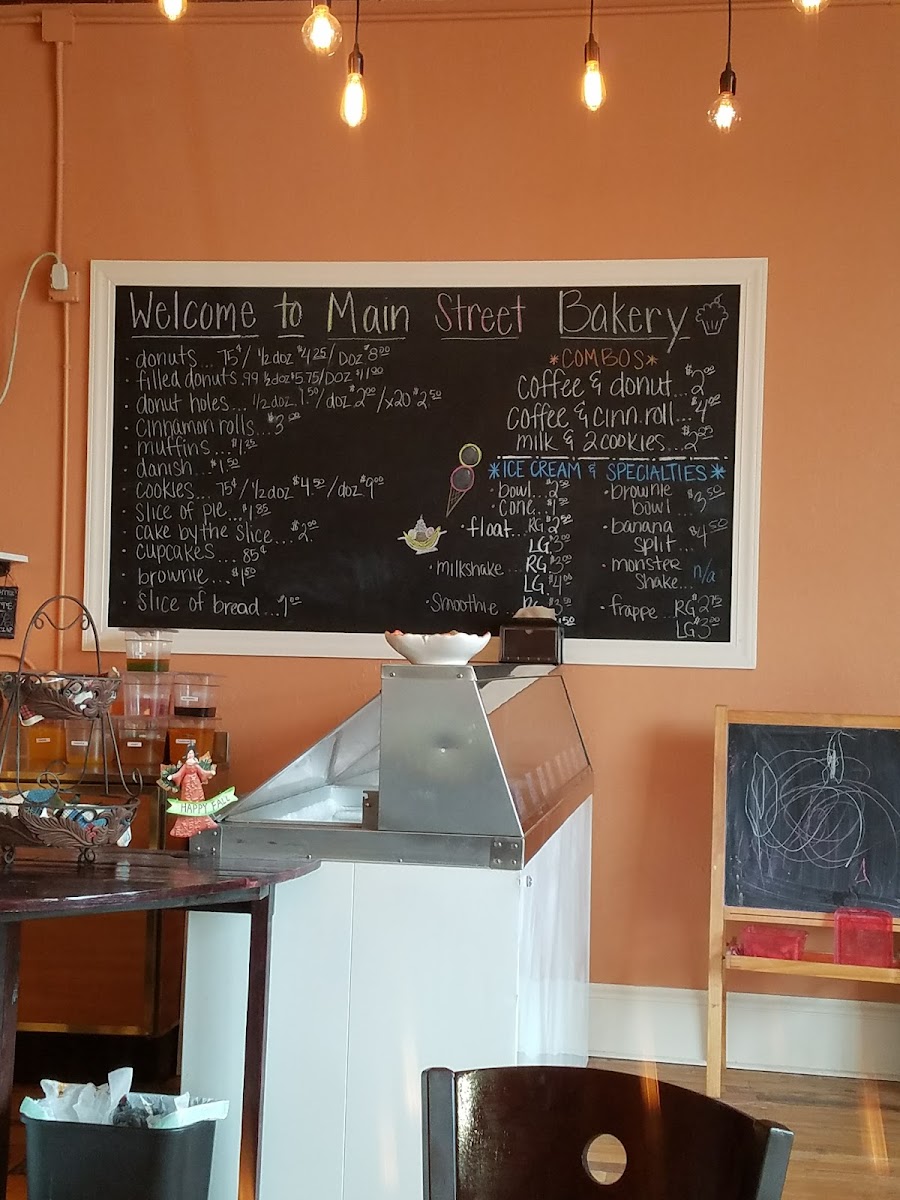 Welcome to Main Street Bakery
· donuts... 75¢/ 1/2 doz $4.25/ Doz $8.00
· filled donuts .99 1/2 doz $5.75/Doz $11.00
· donut holes... 1/2 doz 1.50/doz $2.00/x20 $2.50
· cinnamon rolls... $3.00
· muffins... $1.25
· danish... $1.50
· cookies... 75¢/ 1/2 doz $4.50/doz $9.00
· slice of pie... $1.85
· cake by the slice... $2.00
· cupcakes... 85¢
· brownie... $1.50
· slice of bread... $1.00
*COMBOS*
coffee & donut... $2.00
coffee & cinn. roll... $4.00
milk & 2 cookies...
*ICE CREAM & SPECIALTIES*
· bowl... $2.50
· cone...
· float... RG $2.50
LG 3.00
· milkshake... RG $3.00
LG $4.00
· Smoothie...
· brownie bowl... $3.50
· banana $4.50
split...
· monster
shake... n/a
· frappe... RG $2.75
LG $3.00
HAPPY FALL